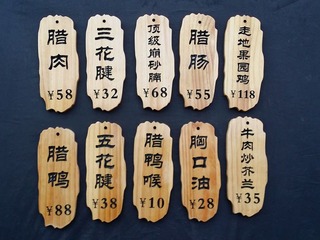 腊肉
¥58
三花腱
¥32
顶级崩砂腩
¥68
腊肠
¥55
走地果园鸡
¥118
腊鸭
¥88
五花腱
¥38
腊鸭喉
¥10
胸口油
¥28
牛肉炒芥兰
¥35